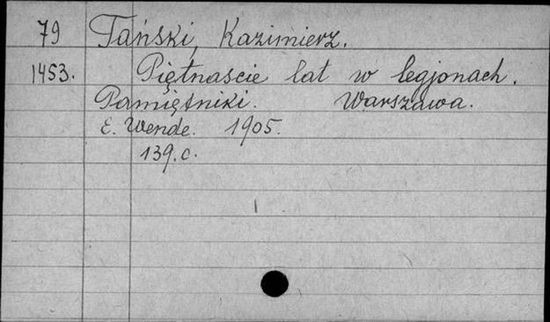 79 Tański, Kazimierz.
1453. Piętnascie lat w legjonach.
Pamiętniki. Warszawa.
E. Wende. 1905.
139.c.